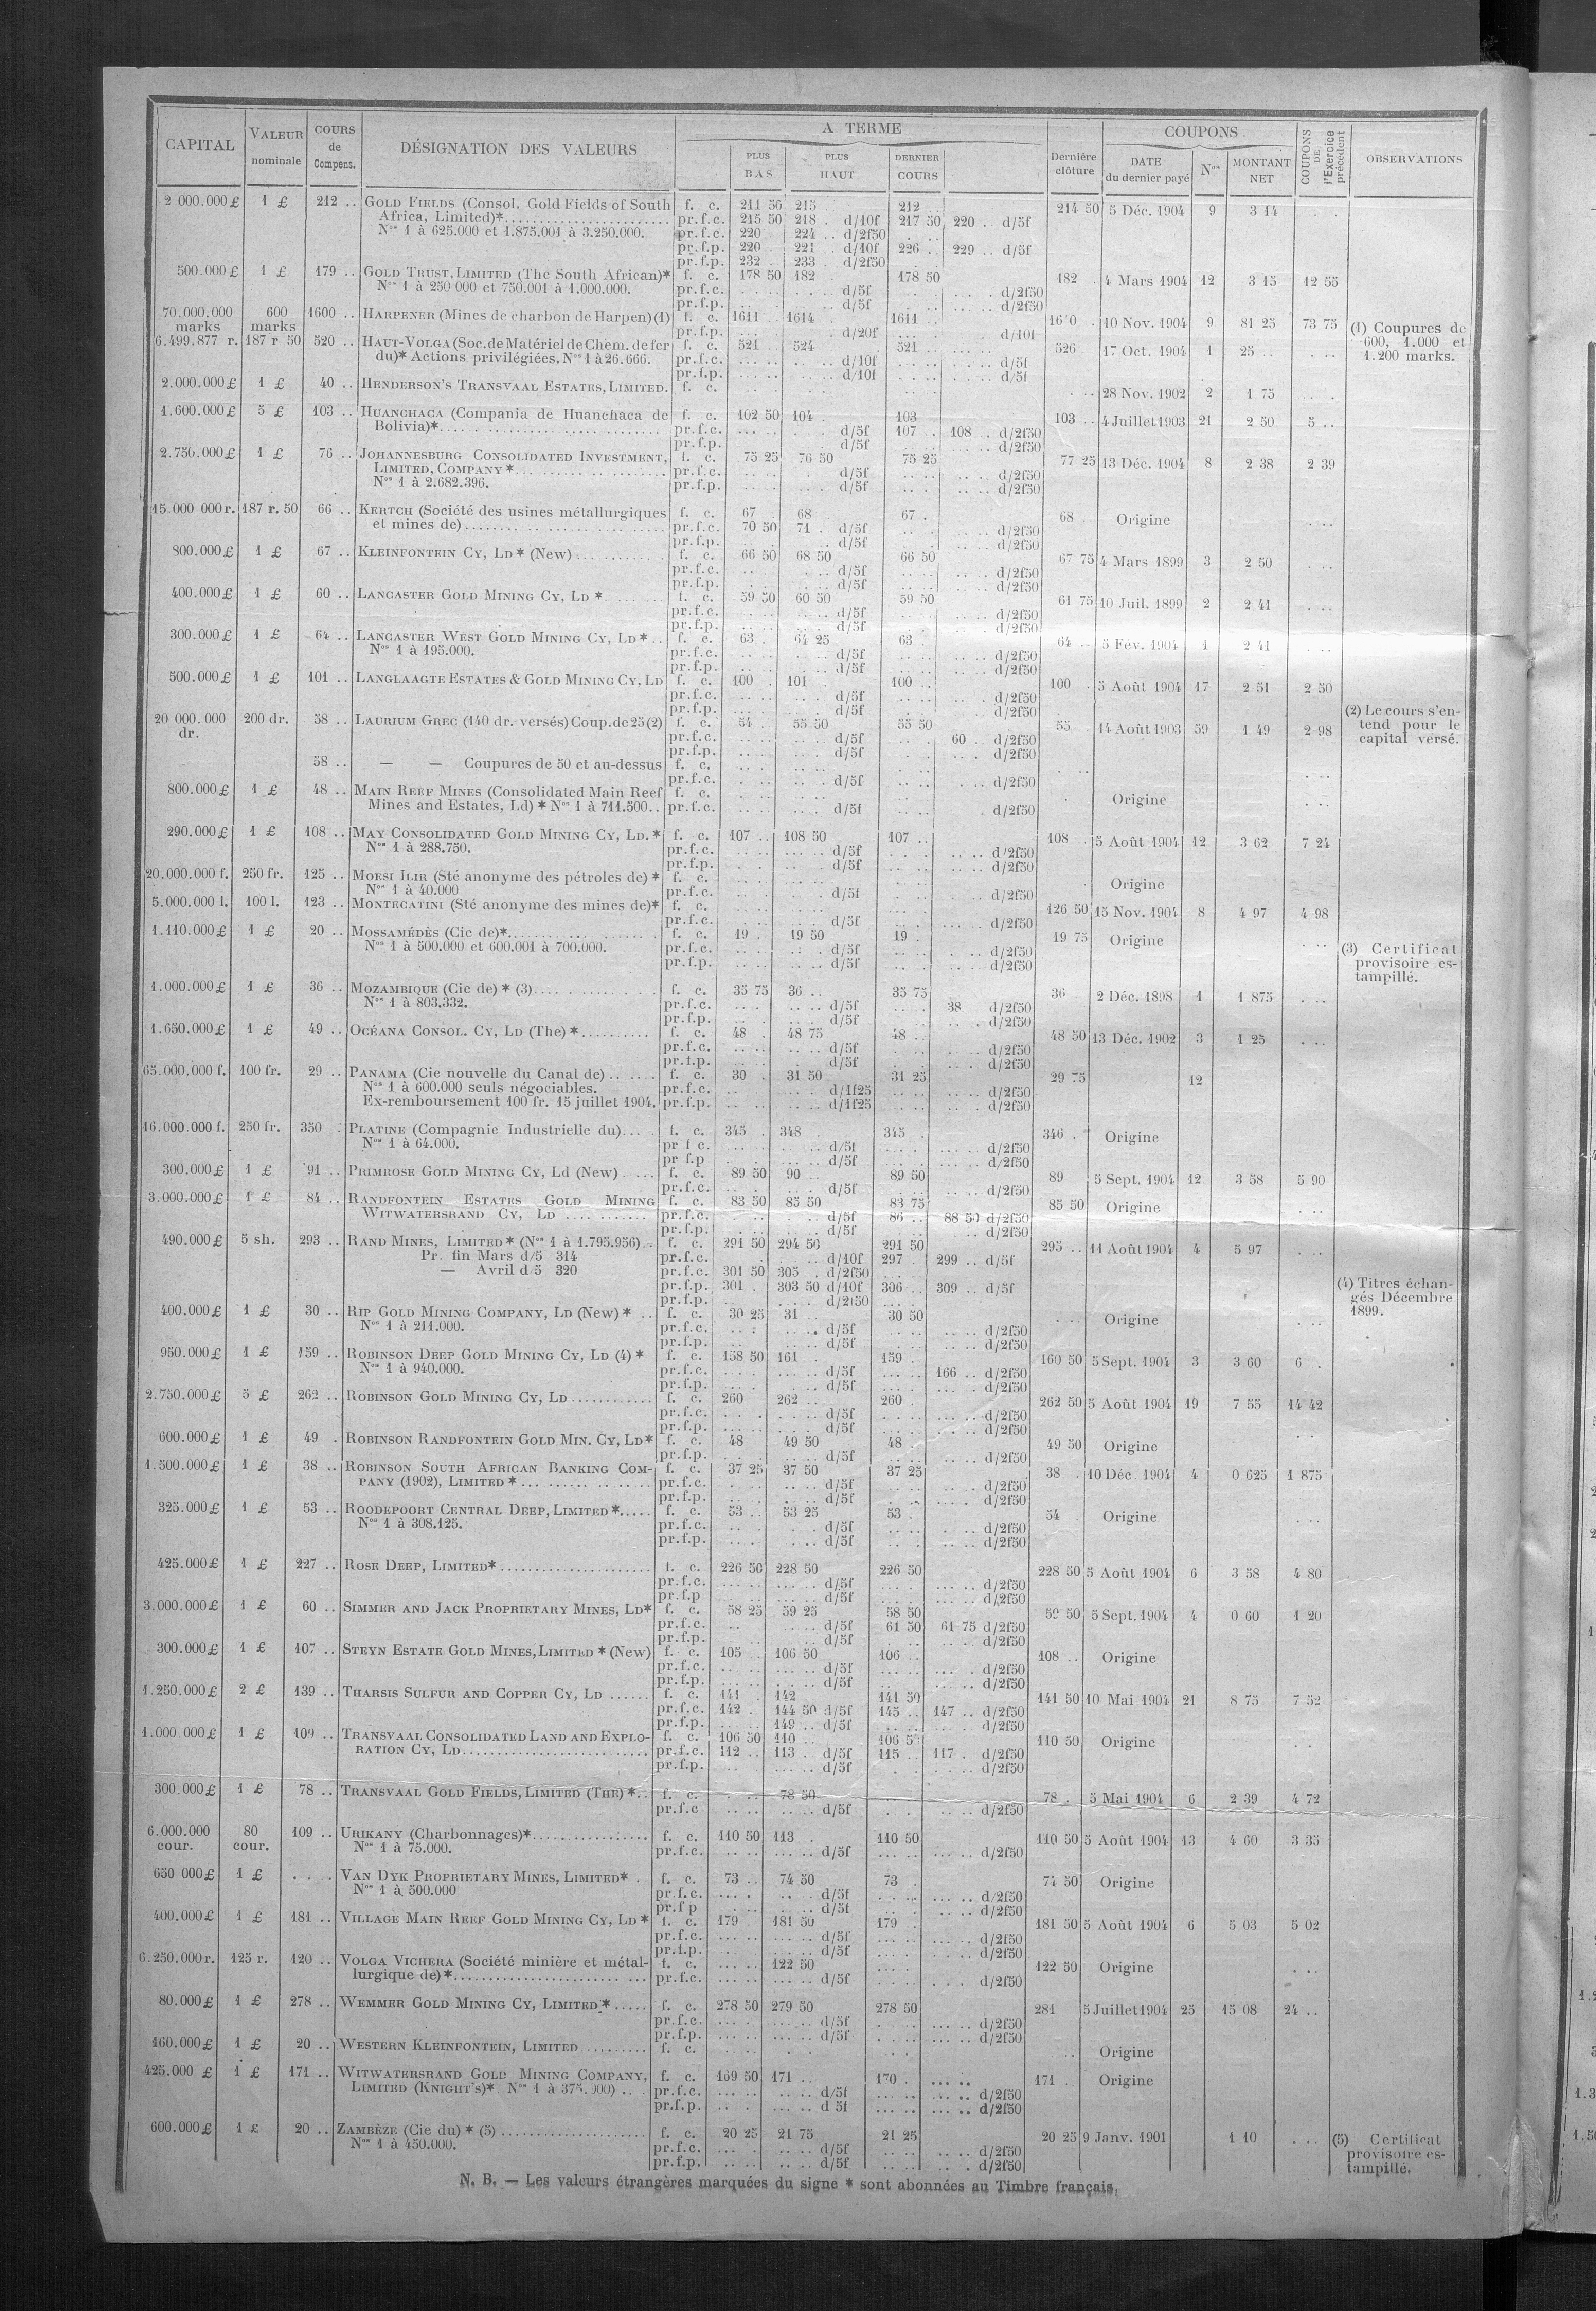 CAPITAL VALEUR nominale COURS de Compens. DÉSIGNATION DES VALEURS A TERME PLUS BAS PLUS HAUT DERNIER COURS Dernière clôture COUPONS DATE du dernier payé Nos MONTANT NET COUPONS DE l'Exercice précédent OBSERVATIONS
2 000.000 £ 1 £ 212 .. GOLD FIELDS (Consol. Gold Fields of South f. c. 211 50 215 212 .. 214 50 5 Déc. 1904 9 3 14
Africa, Limited)* pr.f.c. 215 50 218 . d/10f 217 50 220 . d/5f
Nos 1 à 625.000 et 1.875.001 à 3.250.000. pr.f.c. 220 . 224 .. d/2f50
pr.f.p. 220 . 221 . d/10f 226 .. 229 .. d/5f
pr.f.p. 232 . 233 . d/2f50
500.000 £ 1 £ 179 .. GOLD TRUST, LIMITED (The South African)* f. c. 178 50 182 178 50 182 . 4 Mars 1904 12 3 15 12 55
Nos 1 à 250 000 et 750.001 à 1.000.000. pr.f.c. d/5f d/2f50
pr.f.p. d/5f d/2f50
70.000.000 marks 600 marks 1600 .. HARPENER (Mines de charbon de Harpen) (1) f. c. 1611 .. 1614 1611 .. 10 Nov. 1904 9 81 25 73 75 (1) Coupures de
pr.f.p. d/20f d/10f 600, 1.000 et
6.499.877 r. 187 r 50 520 .. HAUT-VOLGA (Soc. de Matériel de Chem. de fer f. c. 521 524 521 .. 526 17 Oct. 1904 1 25 .. 1.200 marks.
du)* Actions privilégiées. Nos 1 à 26.666. pr.f.c. d/10f d/5f
pr.f.p. d/10f d/5f
2.000.000 £ 1 £ 40 .. HENDERSON'S TRANSVAAL ESTATES, LIMITED. f. c. 28 Nov. 1902 2 1 75
1.600.000 £ 5 £ 103 .. HUANCHACA (Compania de Huanchaca de f. c. 102 50 104 103 103 .. 4 Juillet 1903 21 2 50 5 ..
Bolivia)* pr.f.c. d/5f 107 .. 108 . d/2f50
pr.f.p. d/5f d/2f50
2.750.000 £ 1 £ 76 .. JOHANNESBURG CONSOLIDATED INVESTMENT, f. c. 75 25 76 50 75 25 77 25 13 Déc. 1904 8 2 38 2 39
LIMITED, COMPANY * pr.f.c. d/5f d/2f50
Nos 1 à 2.682.396. pr.f.p. d/5f d/2f50
15.000 000 r. 187 r. 50 66 .. KERTCH (Société des usines métallurgiques f. c. 67 68 67 . 68 Origine
et mines de) pr.f.c. 70 50 71 . d/5f d/2f50
pr.f.p. d/5f d/2f50
800.000 £ 1 £ 67 .. KLEINFONTEIN CY, LD * (New) f. c. 66 50 68 50 66 50 67 75 4 Mars 1899 3 2 50
pr.f.c. d/5f d/2f50
pr.f.p. d/5f d/2f50
400.000 £ 1 £ 60 .. LANCASTER GOLD MINING CY, LD * f. c. 59 50 60 50 59 50 61 75 10 Juil. 1899 2 2 41
pr.f.c. d/5f d/2f50
pr.f.p. d/5f d/2f50
300.000 £ 1 £ 64 .. LANCASTER WEST GOLD MINING CY, LD * f. c. 63 . 64 25 63 . 64 .. 5 Fév. 1904 1 2 41
Nos 1 à 195.000. pr.f.c. d/5f d/2f50
pr.f.p. d/5f d/2f50
500.000 £ 1 £ 101 .. LANGLAAGTE ESTATES & GOLD MINING CY, LD f. c. 100 . 101 100 .. 100 . 5 Août 1904 17 2 51 2 50
pr.f.c. d/5f d/2f50
pr.f.p. d/5f d/2f50
20 000.000 dr. 200 dr. 58 .. LAURIUM GREC (140 dr. versés) Coup. de 25 (2) f. c. 54 . 55 50 55 50 55 14 Août 1903 59 1 49 2 98 (2) Le cours s'entend pour le capital versé.
pr.f.c. d/5f 60 .. d/2f50
pr.f.p. d/5f d/2f50
58 .. — — Coupures de 50 et au-dessus f. c.
pr.f.c. d/5f d/2f50
800.000 £ 1 £ 48 .. MAIN REEF MINES (Consolidated Main Reef f. c. Origine
Mines and Estates, Ld) * Nos 1 à 711.500 pr.f.c. d/5f d/2f50
290.000 £ 1 £ 108 .. MAY CONSOLIDATED GOLD MINING CY, LD. * f. c. 107 .. 108 50 107 .. 108 . 5 Août 1904 12 3 62 7 24
Nos 1 à 288.750. pr.f.c. d/5f d/2f50
pr.f.p. d/5f d/2f50
20.000.000 f. 250 fr. 125 .. MOESI ILIR (Sté anonyme des pétroles de) * f. c. Origine
Nos 1 à 40.000 pr.f.c. d/5f d/2f50
5.000.000 l. 100 l. 123 .. MONTECATINI (Sté anonyme des mines de)* f. c. 126 50 15 Nov. 1904 8 4 97 4 98
pr.f.c. d/5f d/2f50
1.110.000 £ 1 £ 20 .. MOSSAMÉDÈS (Cie de)* f. c. 19 . 19 50 19 . 19 75 Origine
Nos 1 à 500.000 et 600.001 à 700.000. pr.f.c. d/5f d/2f50 (3) Certificat
pr.f.p. d/5f d/2f50 provisoire estampillé.
1.000.000 £ 1 £ 36 .. MOZAMBIQUE (Cie de) * (3) f. c. 35 75 36 .. 35 75 36 2 Déc. 1898 1 1 875
Nos 1 à 803.332. pr.f.c. d/5f 38 d/2f50
pr.f.p. d/5f d/2f50
1.650.000 £ 1 £ 49 .. OCÉANA CONSOL. CY, LD (The) * f. c. 48 . 48 75 48 .. 48 50 13 Déc. 1902 3 1 25
pr.f.c. d/5f d/2f50
pr.f.p. d/5f d/2f50
65.000,000 f. 100 fr. 29 .. PANAMA (Cie nouvelle du Canal de) f. c. 30 . 31 50 31 25 29 75 12
Nos 1 à 600.000 seuls négociables. pr.f.c. d/1f25 d/2f50
Ex-remboursement 100 fr. 15 juillet 1904. pr.f.p. d/1f25 d/2f50
16.000.000 f. 250 fr. 350 PLATINE (Compagnie Industrielle du) f. c. 345 . 348 345 . 346 . Origine
Nos 1 à 64.000. pr f c. d/5f d/2f50
pr f.p d/5f d/2f50
300.000 £ 1 £ 91 .. PRIMROSE GOLD MINING CY, Ld (New) f. c. 89 50 90 .. 89 50 89 5 Sept. 1904 12 3 58 5 90
pr.f.c. d/5f d/2f50
3.000.000 £ 1 £ 84 .. RANDFONTEIN ESTATES GOLD MINING f. c. 83 50 85 50 83 75 85 50 Origine
WITWATERSRAND CY, LD pr.f.c. d/5f 86 .. 88 50 d/2f50
pr.f.p. d/5f d/2f50
490.000 £ 5 sh. 293 .. RAND MINES, LIMITED * (Nos 1 à 1.795.956) f. c. 291 50 294 50 291 50 295 .. 11 Août 1904 4 5 97
Pr. fin Mars d/5 314 pr.f.c. d/10f 297 . 299 .. d/5f
— Avril d/5 320 pr.f.c. 301 50 305 . d/2f50
pr.f.p. 301 . 303 50 d/10f 306 .. 309 .. d/5f (4) Titres échangés Décembre 1899.
pr.f.p. d/2f50
400.000 £ 1 £ 30 .. RIP GOLD MINING COMPANY, LD (New) * f. c. 30 25 31 .. 30 50 Origine
Nos 1 à 211.000. pr.f.c. d/5f d/2f50
pr.f.p. d/5f d/2f50
950.000 £ 1 £ 159 .. ROBINSON DEEP GOLD MINING CY, LD (4) * f. c. 158 50 161 159 . 160 50 5 Sept. 1904 3 3 60 6 .
Nos 1 à 940.000. pr.f.c. d/5f 166 .. d/2f50
pr.f.p. d/5f d/2f50
2.750.000 £ 5 £ 262 .. ROBINSON GOLD MINING CY, LD f. c. 260 262 .. 260 . 262 50 5 Août 1904 19 7 55 14 42
pr.f.c. d/5f d/2f50
pr.f.p. d/5f d/2f50
600.000 £ 1 £ 49 . ROBINSON RANDFONTEIN GOLD MIN. CY, LD* f. c. 48 49 50 48 . 49 50 Origine
pr.f.p. d/5f d/2f50
1.500.000 £ 1 £ 38 .. ROBINSON SOUTH AFRICAN BANKING COM- f. c. 37 25 37 50 37 25 38 . 10 Déc. 1904 4 0 625 1 875
PANY (1902), LIMITED * pr.f.c. d/5f d/2f50
pr.f.p. d/5f d/2f50
325.000 £ 1 £ 53 .. ROODEPOORT CENTRAL DEEP, LIMITED * f. c. 53 .. 53 25 53 . 54 Origine
Nos 1 à 308.125. pr.f.c. d/5f d/2f50
pr.f.p. d/5f d/2f50
425.000 £ 1 £ 227 .. ROSE DEEP, LIMITED* f. c. 226 50 228 50 226 50 228 50 5 Août 1904 6 3 58 4 80
pr.f.c. d/5f d/2f50
pr.f.p d/5f d/2f50
3.000.000 £ 1 £ 60 .. SIMMER AND JACK PROPRIETARY MINES, LD* f. c. 58 25 59 25 58 50 59 50 5 Sept. 1904 4 0 60 1 20
pr.f.c. d/5f 61 50 61 75 d/2f50
pr.f.p. d/5f d/2f50
300.000 £ 1 £ 107 .. STEYN ESTATE GOLD MINES, LIMITED * (New) f. c. 105 . 106 50 106 .. 108 .. Origine
pr.f.c. d/5f d/2f50
pr.f.p. d/5f d/2f50
1.250.000 £ 2 £ 139 .. THARSIS SULFUR AND COPPER CY, LD f. c. 141 . 142 141 50 141 50 10 Mai 1904 21 8 75 7 52
pr.f.c. 142 . 144 50 d/5f 145 .. 147 .. d/2f50
pr.f.p. 149 .. d/5f d/2f50
1.000.000 £ 1 £ 109 .. TRANSVAAL CONSOLIDATED LAND AND EXPLO- f. c. 106 50 110 .. 106 50 110 50 Origine
RATION CY, LD pr.f.c. 112 .. 113 . d/5f 115 .. 117 . d/2f50
pr.f.p. d/5f d/2f50
300.000 £ 1 £ 78 .. TRANSVAAL GOLD FIELDS, LIMITED (THE) * f. c. 78 50 78 . 5 Mai 1904 6 2 39 4 72
pr.f.c d/5f d/2f50
6.000.000 cour. 80 cour. 109 .. URIKANY (Charbonnages)* f. c. 110 50 113 . 110 50 110 50 5 Août 1904 13 4 60 3 35
Nos 1 à 75.000. pr.f.c. d/5f d/2f50
650 000 £ 1 £ VAN DYK PROPRIETARY MINES, LIMITED* f. c. 73 .. 74 50 73 . 74 50 Origine
Nos 1 à 500.000 pr.f.c. d/5f d/2f50
pr.f p d/5f d/2f50
400.000 £ 1 £ 181 .. VILLAGE MAIN REEF GOLD MINING CY, LD * f. c. 179 181 50 179 .. 181 50 5 Août 1904 6 5 03 5 02
pr.f.c. d/5f d/2f50
pr.f.p. d/5f d/2f50
6.250.000 r. 125 r. 120 .. VOLGA VICHERA (Société minière et métal- f. c. 122 50 122 50 Origine
lurgique de) * pr.f.c. d/5f d/2f50
80.000 £ 1 £ 278 .. WEMMER GOLD MINING CY, LIMITED * f. c. 278 50 279 50 278 50 281 5 Juillet 1904 25 15 08 24 ..
pr.f.c. d/5f d/2f50
pr.f.p. d/5f d/2f50
160.000 £ 1 £ 20 .. WESTERN KLEINFONTEIN, LIMITED f. c. Origine
425.000 £ 1 £ 171 .. WITWATERSRAND GOLD MINING COMPANY, f. c. 169 50 171 .. 170 . 171 Origine
LIMITED (KNIGHT'S)* Nos 1 à pr.f.c. d/5f d/2f50
pr.f.p. d 5f d/2f50
600.000 £ 1 £ 20 .. ZAMBÈZE (Cie du) * (5) f. c. 20 25 21 75 21 25 20 25 9 Janv. 1901 1 10 (5) Certificat
Nos 1 à 450.000. pr.f.c. d/5f d/2f50 provisoire es-
pr.f.p. d/5f d/2f50 tampillé.
N. B. — Les valeurs étrangères marquées du signe * sont abonnées au Timbre français.